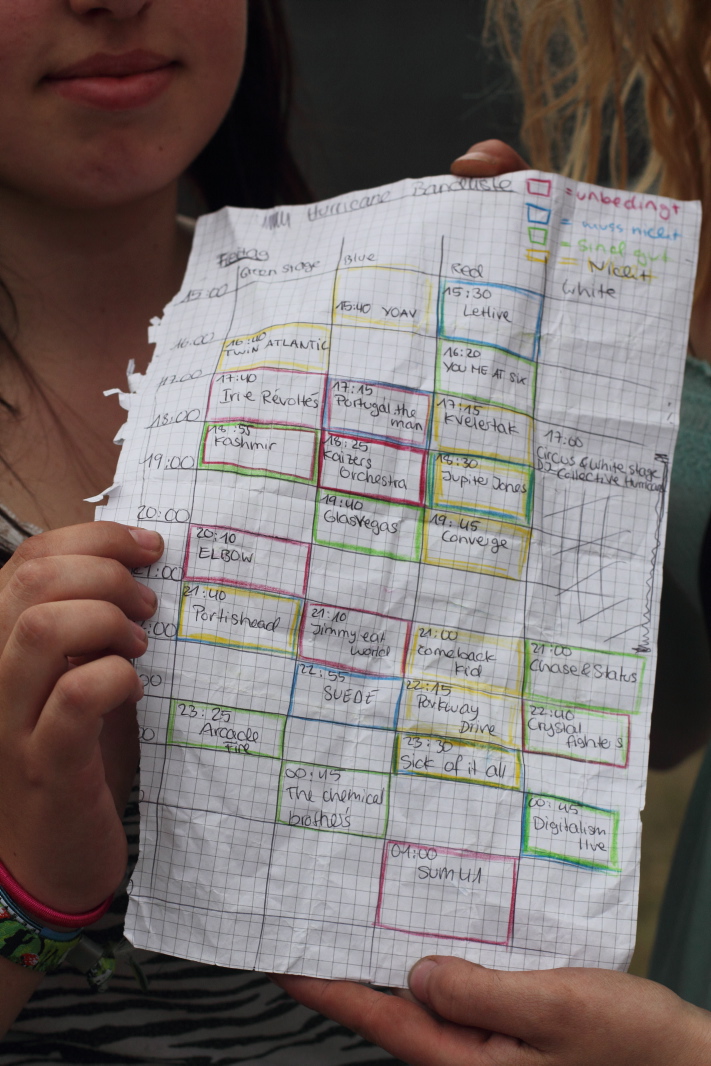 Hurricane Bandliste
= unbedingt
= muss nicht
= sind gut
= Nicht
Freitag
Green stage
Blue
Red
White
15:00
15:40 YOAV
15:30
Letlive
16:00
16:40
TWIN ATLANTIC
16:20
YOU ME AT SIX
17:00
17:40
Irie Révoltés
17:15
Portugal.the
man
17:15
Kvelertak
17:00
Circus & White stage
DJ-Collective Hurrican
18:00
18:55
Kashmir
18:25
Kaizers
Orchestra
18:30
Jupiter Jones
19:00
19:40
Glasvegas
19:45
Converge
20:00
20:10
ELBOW
21:00
21:40
Portishead
21:10
Jimmy eat
world
21:00
Comeback
Kid
21:00
Chase & Status
:00
22:55
SUEDE
22:15
Parkway
Drive
22:40
Crystal
fighters
00
23:25
Arcade
Fire
23:30
Sick of it all
00:45
The chemical
brothers
00:45
Digitalism
live
01:00
SUM 41